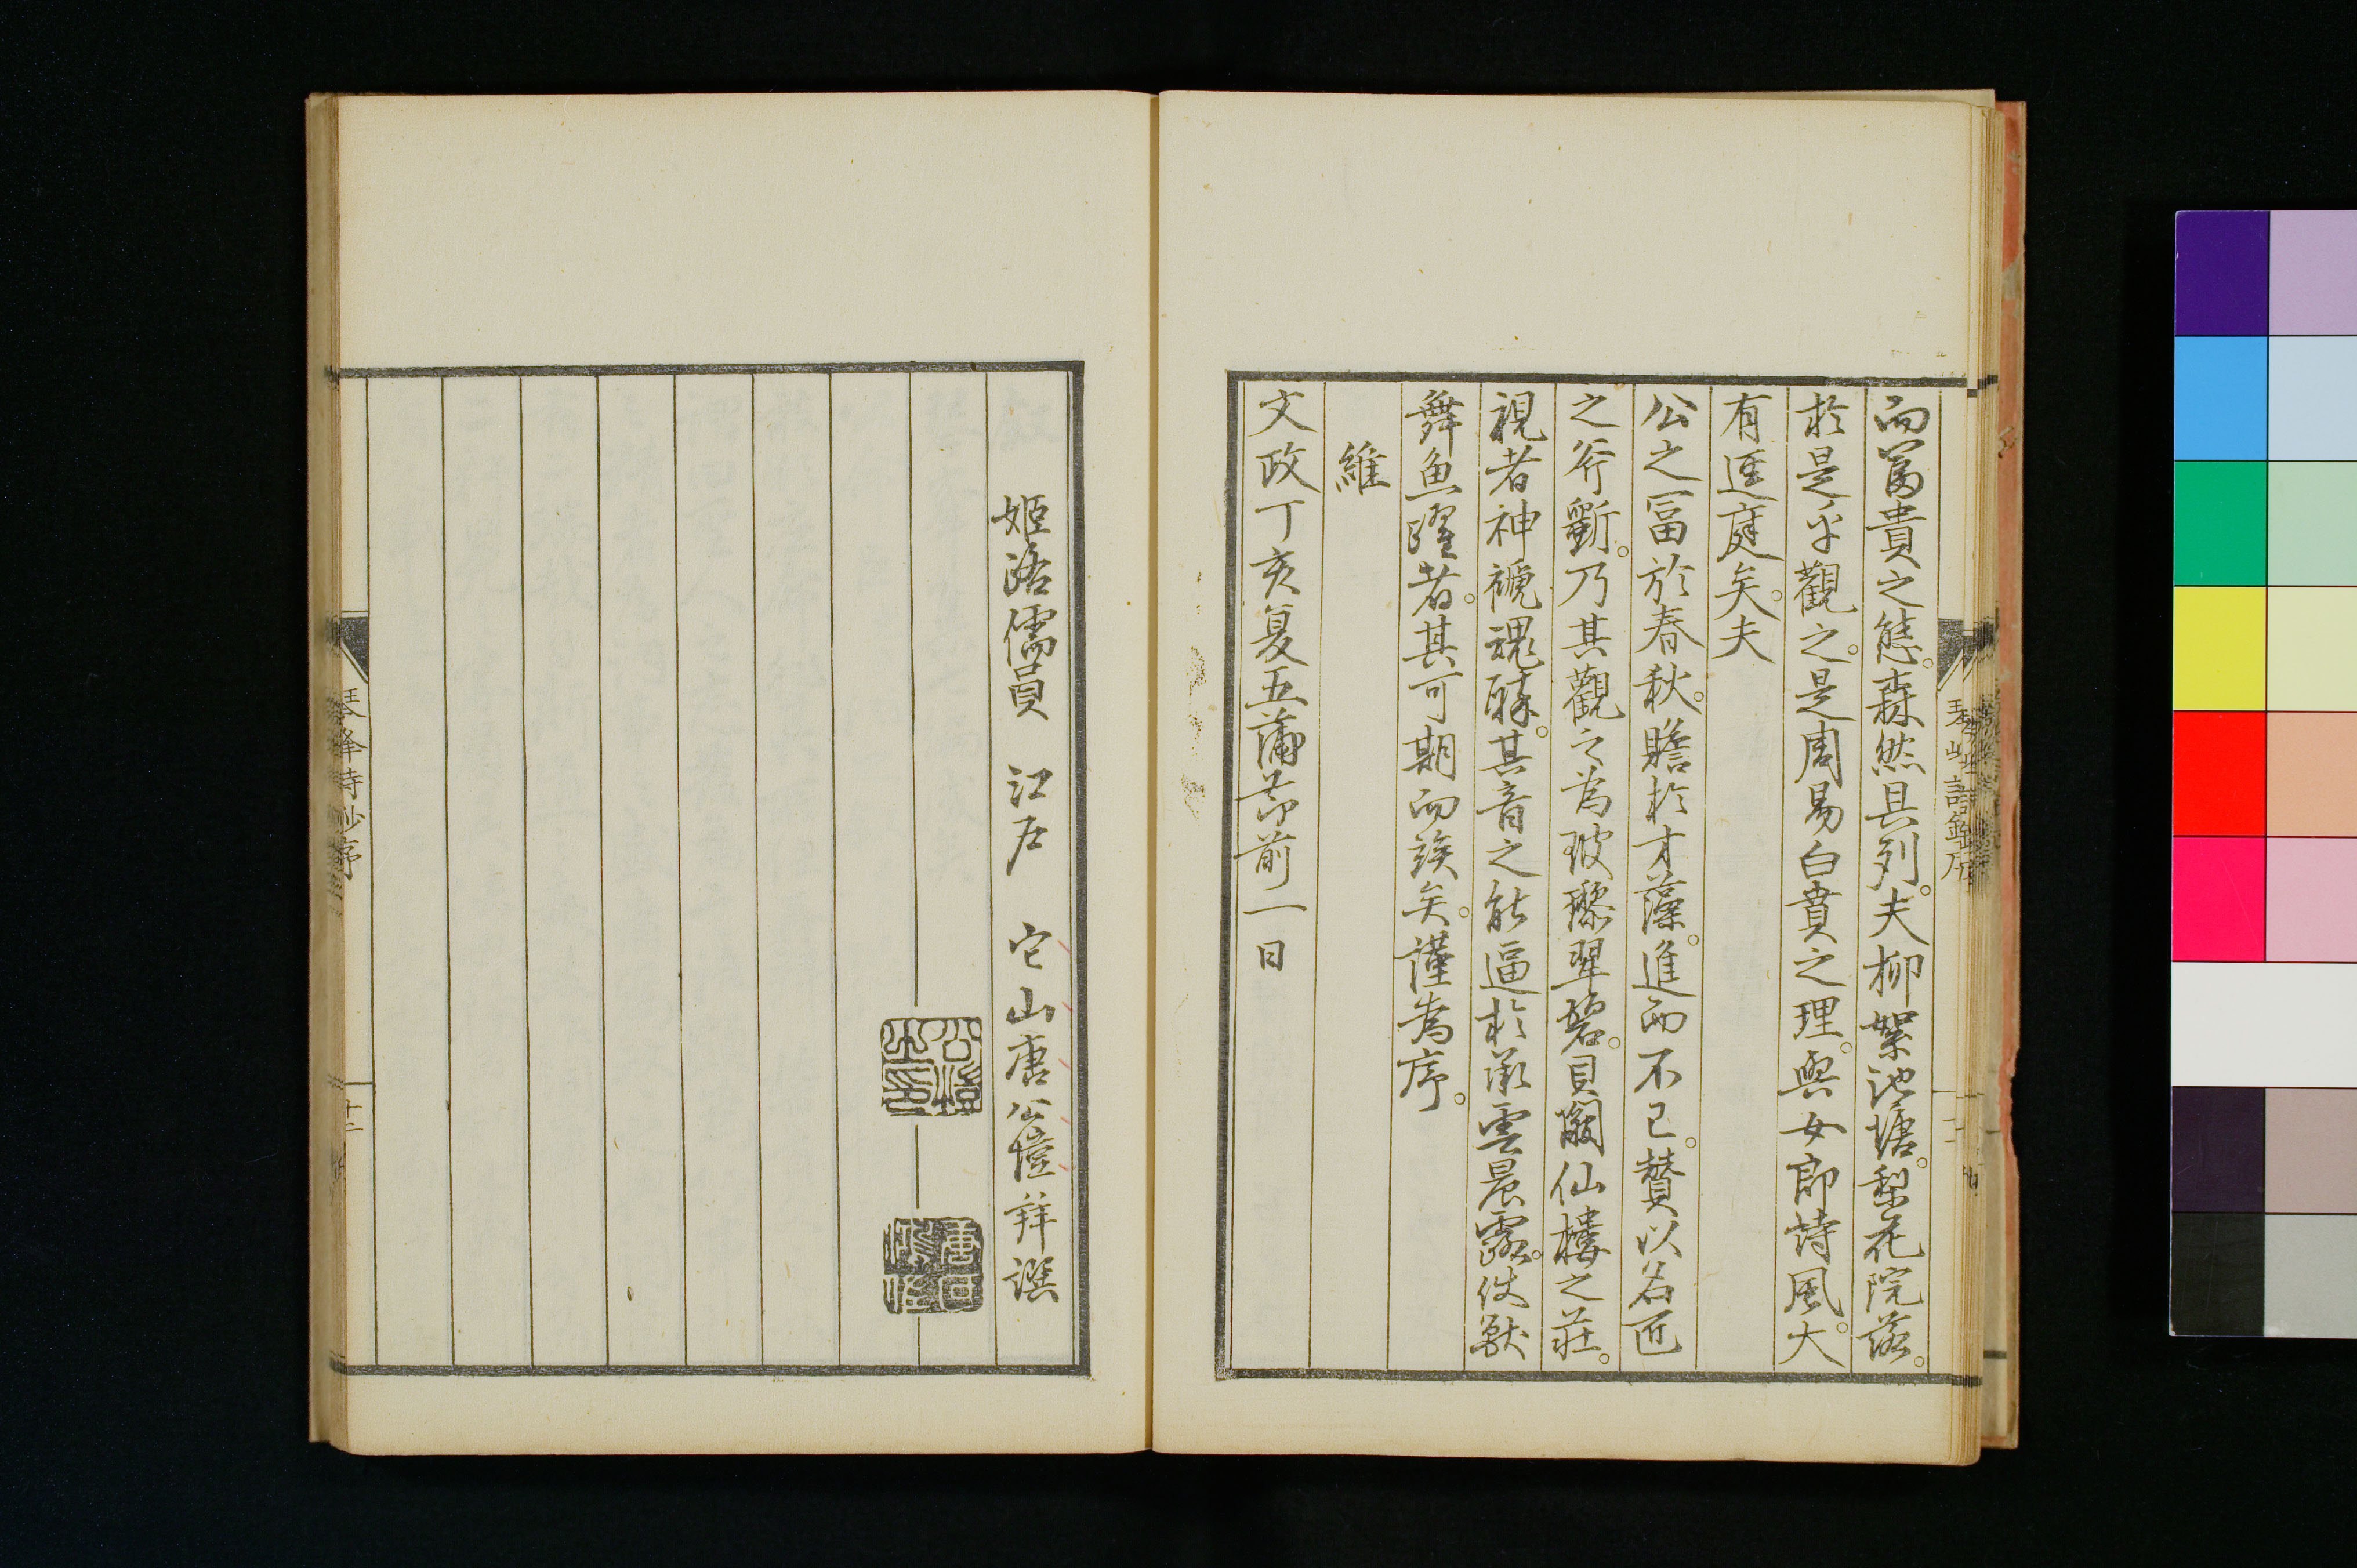 而富貴之態。森然具列。夫柳絮池塘。梨花院落。
於是乎觀之。是周易白賁之理。與女郎詩風。大
有逕庭矣。夫
公之冨於春秋。贍於才藻。進而不已。賛以名匠
之斧斲。乃其觀之為玻瓈翠碧。貝闕仙樓之莊。
視者神褫魂醉。其音之能逼於承雲晨露。伎獸
舞魚躍者。其可期而竢矣。謹為序。
維
文政丁亥夏五蒲節前一日
姬路儒員 江戶 它山唐公愷拜譔
公愷之印
琴峰詩鈔序
十二